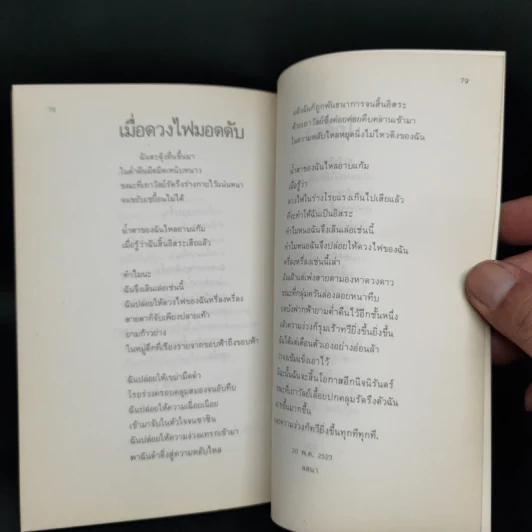 78
เมื่อดวงไฟมอดดับ
ฉันสะดุ้งตื่นขึ้นมา
ในค่ำคืนมืดมิดเหน็บหนาว
ขณะที่เถาวัลย์รัดรึงร่างกายไว้แน่นหนา
จนขยับเขยื้อนไม่ได้
น้ำตาของฉันไหลอาบแก้ม
เมื่อรู้ว่าฉันสิ้นอิสระเสียแล้ว
ทำไมนะ
ฉันจึงเลินเล่อเช่นนี้
ฉันปล่อยให้ดวงไฟของฉันหรี่ลง
สายตาก็จับเพียงปลายเท้า
ยามก้าวย่าง
ในหมู่ตึกที่เรียงรายจากขอบฟ้าถึงขอบฟ้า
ฉันปล่อยให้เขม่ามืดดำ
โรยร่วงครอบคลุมสมองจนอับทึบ
ฉันปล่อยให้ความเฉื่อยเนือย
เข้ามาจับในหัวใจจนชาชิน
ฉันปล่อยให้ความง่วงแทรกเข้ามา
พาฉันดำดิ่งสู่ความหลับใหล
79
แล้วฉันก็ถูกพันธนาการจนสิ้นอิสระ
ด้วยเถาวัลย์ซึ่งค่อยค่อยคืบคลานเข้ามา
ในความหลับใหลหยุดนิ่งไม่ไหวติงของฉัน
น้ำตาของฉันไหลอาบแก้ม
เมื่อรู้ว่า
ดวงไฟในร่างโรยแรงเกินไปเสียแล้ว
ที่จะทำให้ฉันเป็นอิสระ
ทำไมหนอฉันจึงเลินเล่อเช่นนี้
ทำไมหนอฉันจึงปล่อยให้ดวงไฟของฉัน
หรี่ลงเช่นนี้เล่า
ฉันได้แต่เพ่งสายตามองหาดวงดาว
ขณะที่กลุ่มควันล่องลอยหนาทึบ
บดบังฟากฟ้ายามค่ำคืนไว้อีกชั้นหนึ่ง
แล้วความง่วงก็รุมเร้าทวียิ่งขึ้นยิ่งขึ้น
ฉันได้แต่เตือนตัวเองอย่างอ่อนล้า
ว่าจงเข้มแข็งเอาไว้
มิฉะนั้นฉันจะสิ้นโอกาสอีกนิจนิรันดร์
ขณะที่เถาวัลย์เลื้อยปกคลุมรัดรึงตัวฉัน
หนาขึ้นมากขึ้น
และความง่วงก็ทวียิ่งขึ้นทุกทีทุกที.
20 พ.ค. 2523
ลลนา